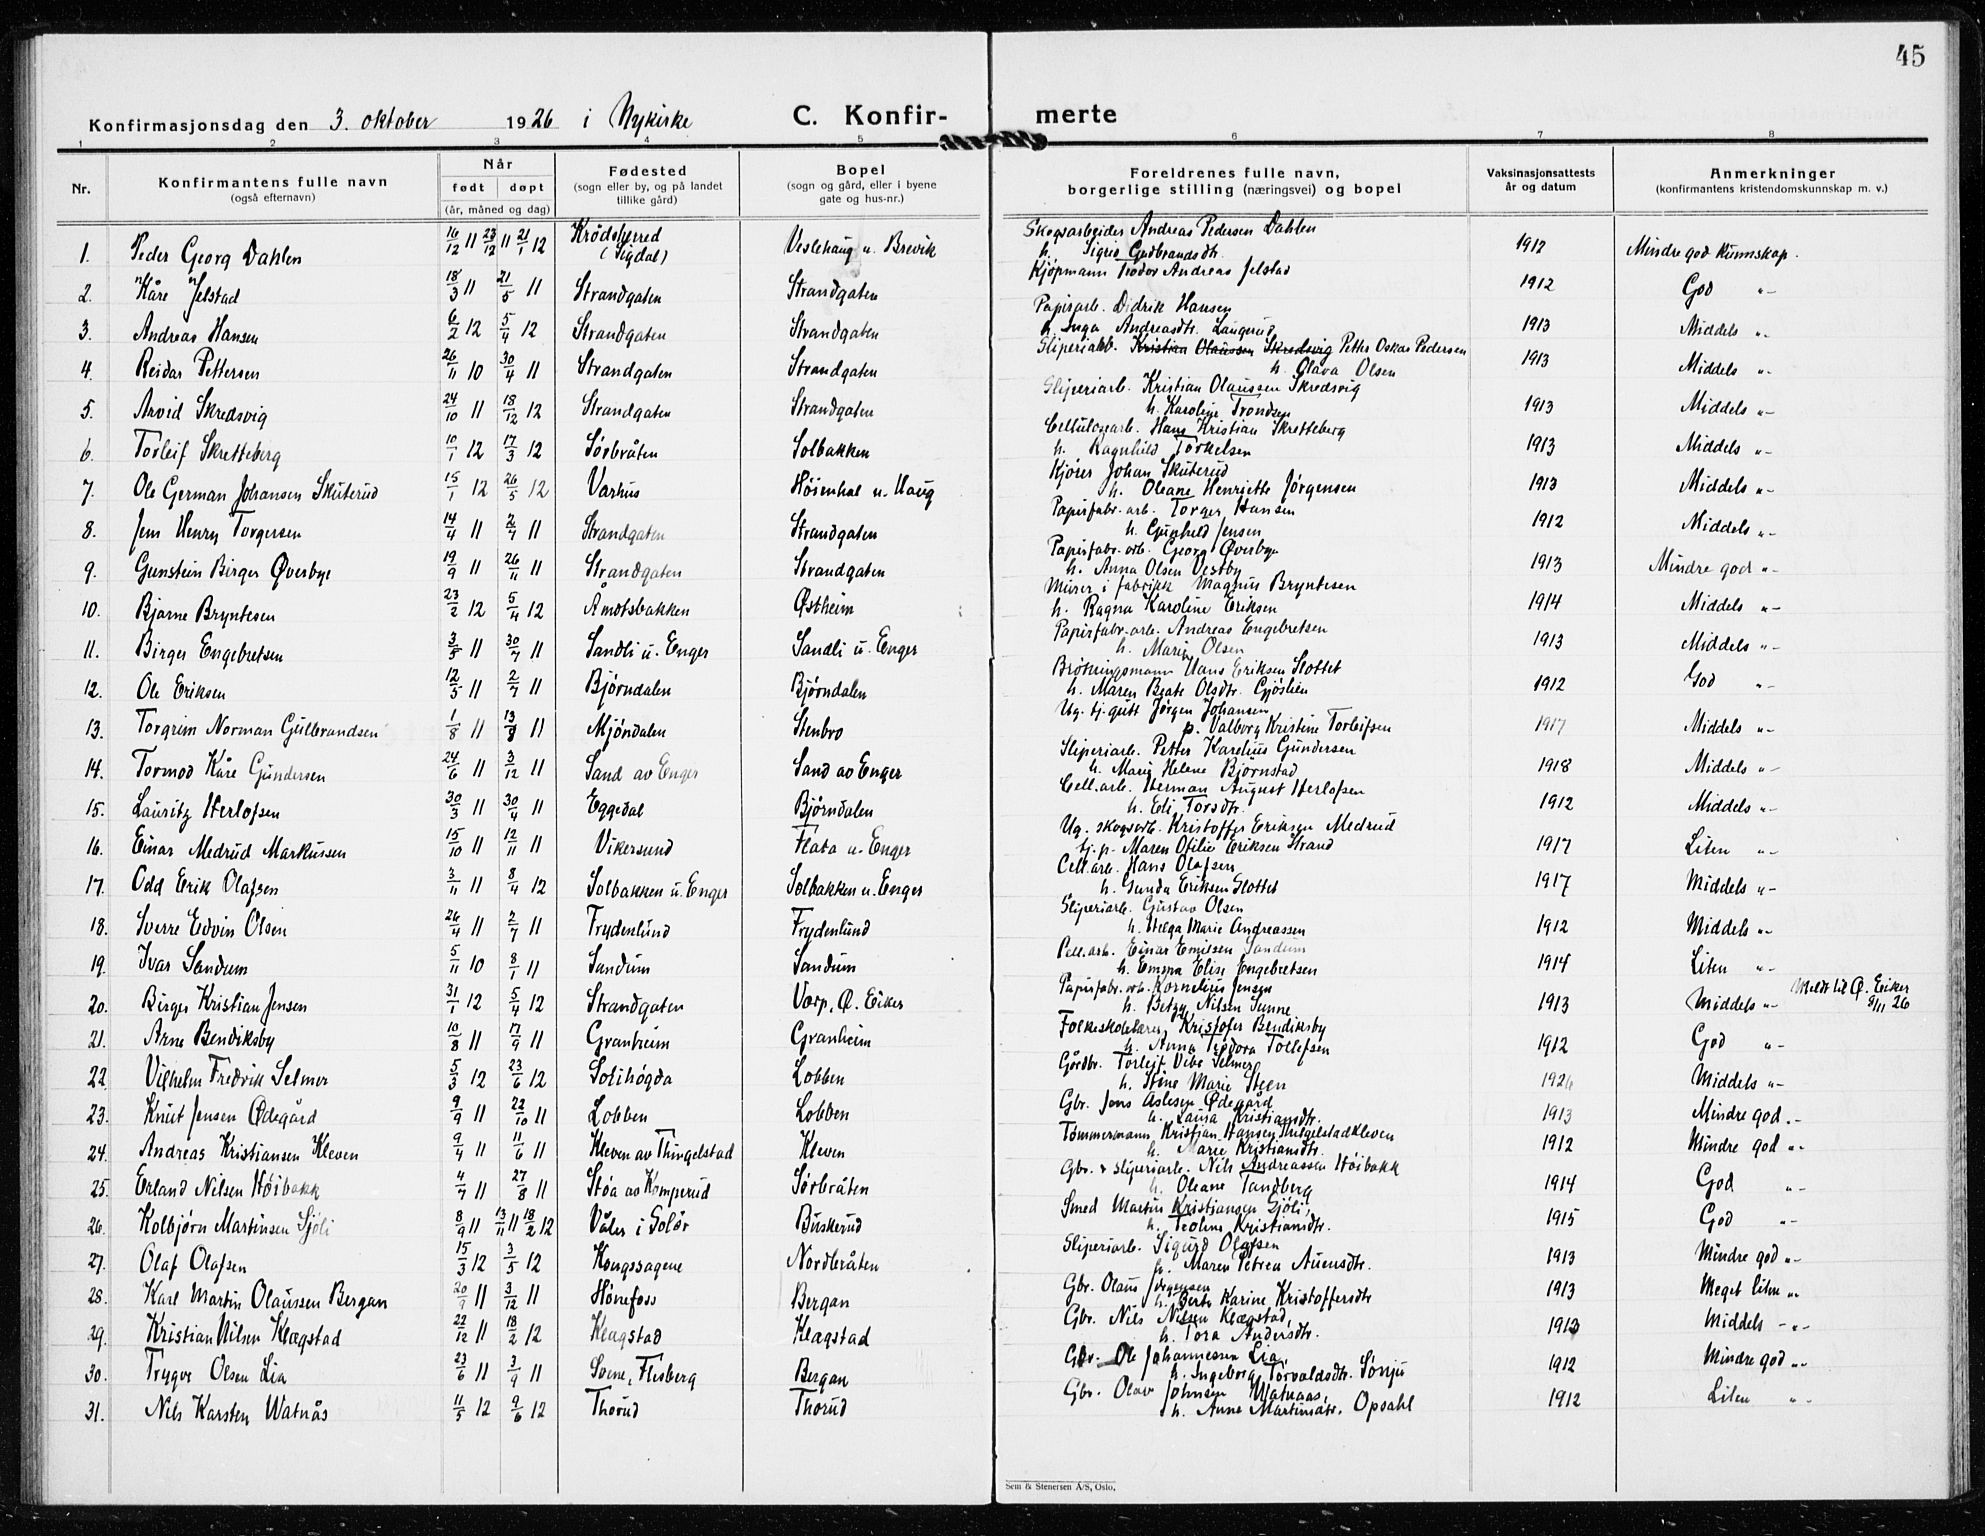 45
Konfirmasjonsdag den 3. oktober 1926 i Nykirke C. Konfir- merte
1 2 3 4 5 6 7 8
Nr. Konfirmantens fulle navn (også efternavn) Når født døpt (år, måned og dag) Fødested (sogn eller by, og på landet tillike gård) Bopel (sogn og gård, eller i byene gate og hus-nr.) Foreldrenes fulle navn, borgerlige stilling (næringsvei) og bopel Vaksinasjonsattests år og datum Anmerkninger (konfirmantens kristendomskunnskap m. v.)
1. Peder Georg Dahlen 16/12 11 23/12 11 21/1 12 Krødsherred (Sigdal) Veslehaug u. Brevik Skogsarbeider Andreas Pedersen Dahlen h. Sigrid Gudbrandsdtr. 1912 Mindre god kunnskap.
2. Kåre Jelstad 18/3 11 21/5 11 Strandgaten Strandgaten Kjøpmann Teodor Andreas Jelstad 1912 God "-
3. Andreas Hansen 6/2 12 5/4 12 Strandgaten Strandgaten Papirarb. Didrik Hansen h. Inga Andreasdtr. Laugerud 1913 Middels "-
4. Reidar Pettersen 26/11 10 30/4 11 Strandgaten Strandgaten Sliperiarb. Kristian Olaussen Skredsvig Petter Oskar Pedersen h. Olava Olsen 1913 Middels "-
5. Arvid Skredsvig 24/10 11 18/12 12 Strandgaten Strandgaten Sliperiarb. Kristian Olaussen Skredsvig h. Karoline Trondsen 1913 Middels "-
6. Torleif Skretteberg 10/1 12 17/3 12 Sørbråten Solbakken Cellulosearb. Hans Kristian Skretteberg h. Ragnhild Torkelsen 1913 Middels "-
7. Ole German Johansen Skuterud 15/1 12 26/5 12 Varhus Høienhal u. Haug Kjører Johan Skuterud h. Oleane Henriette Jørgensen 1913 Middels "-
8. Jens Henry Torgersen 14/4 11 2/7 11 Strandgaten Strandgaten Papirfabr. arb. Torger Hansen h. Gunhild Jensen 1912 Middels "-
9. Gunstein Birger Øverbye 19/9 11 26/11 11 Strandgaten Strandgaten Papirfabr. arb. Georg Øverbye h. Anna Olsen Vestby 1913 Mindre god "-
10. Bjarne Bryntesen 23/2 12 5/4 12 Åmotsbakken Østheim Murer i fabrikk Magnus Bryntesen h. Ragna Karoline Eriksen 1914 Middels "-
11. Birger Engebretsen 3/5 11 30/7 11 Sandli u. Enger Sandli u. Enger Papirfabr. arb. Andreas Engebretsen h. Marie Olsen 1913 Middels "-
12. Ole Eriksen 12/5 11 2/7 11 Bjørndalen Bjørndalen Brøtningsmann Hans Eriksen Slottet h. Maren Beate Olsdtr. Gjøslien 1912 God "-
13. Torgrim Norman Gulbrandsen 1/8 11 13/8 11 Mjøndalen Stenbro Ug. tj. gutt Jørgen Johansen p. Valborg Kristine Torleifsen 1917 Middels "-
14. Tormod Kåre Gundersen 24/6 11 3/12 11 Sand av Enger Sand av Enger Sliperiarb. Petter Karelius Gundersen h. Marie Helene Bjørnstad 1918 Middels "-
15. Lauritz Herlofsen 30/3 11 30/4 11 Eggedal Bjørndalen Cell. arb. Herman August Herlofsen h. Edi Torsdtr. 1912 Middels "-
16. Einar Medrud Markussen 15/10 11 12/11 11 Vikersund Flata u. Enger Ug. skogsarb. Kristoffer Eriksen Medrud tj. p. Maren Otilie Eriksen Strand 1917 Liten "-
17. Odd Erik Olafsen 3/11 11 8/4 12 Solbakken u. Enger Solbakken u. Enger Cell. arb. Hans Olafsen h. Gunda Eriksen Slottet 1917 Middels "-
18. Sverre Edvin Olsen 26/4 11 2/7 11 Frydenlund Frydenlund Sliperiarb. Gustav Olsen h. Helga Marie Andreassen 1912 Middels "-
19. Ivar Sandum 5/11 10 8/1 11 Sandum Sandum Cell. arb. Einar Emilsen Sandum h. Emma Elise Engebretsen 1914 Liten "-
20. Birger Kristian Jensen 31/1 12 5/4 12 Strandgaten Vorp, Ø. Eiker Papirfabr. arb. Kornelius Jensen h. Betzy Nilsen Sunne 1913 Middels "- Meldt til Ø. Eiker 8/11 26
21. Arne Bendiksby 10/8 11 17/9 11 Granheim Granheim Folkeskolelærer Kristofer Bendiksby h. Anna Teodora Tollefsen 1912 God "-
22. Vilhelm Fredrik Selmer 5/3 12 23/6 12 Solihøgda Lobben Gårdbr. Torleif Vibe Selmer h. Stine Marie Steen 1926 Middels "-
23. Knut Jensen Ødegård 9/9 11 22/10 11 Lobben Lobben Gbr. Jens Aslesen Ødegård h. Laura Kristiansdtr. 1913 Mindre god "-
24. Andreas Kristiansen Kleven 9/4 11 11/6 11 Kleven av Thingelstad Kleven Tømmermann Kristian Hansen Thingelstadkleven h. Marie Kristiansdtr. 1912 Mindre god "-
25. Erland Nilsen Høibakk 4/7 11 27/8 11 Støa av Komperud Sørbråten Gbr. & sliperiarb. Nils Andreassen Høibakk h. Oleane Tandberg 1914 God "-
26. Kolbjørn Martinsen Sjøli 8/9 11 13/11 11 18/2 12 Våler i Solør Buskerud Smed Martin Kristiansen Sjøli, h. Teoline Kristiansdtr. 1915 God "-
27. Olaf Olafsen 15/3 12 3/5 12 Kongssagene Nordbråten Sliperiarb. Sigurd Olafsen h. Maren Petrea Auensdtr. 1913 Mindre god "-
28. Karl Martin Olaussen Bergan 20/9 11 3/12 11 Hønefoss Bergan Gbr. Olaus Jørgensen h. Berte Karine Kristoffersdtr 1913 Meget liten "-
29. Kristian Nilsen Klægstad 22/12 11 18/2 12 Klægstad Klægstad Gbr. Nils Nilsen Klægstad, h. Tora Andersdtr. 1913 Middels "-
30. Trygve Olsen Lia 23/6 11 3/9 11 Svene, Flesberg Bergan Gbr. Ole Johannessen Lia, h. Ingeborg Torvaldsdtr. Sønju 1912 Mindre god "-
31. Nils Karsten Watnås 11/5 12 9/6 12 Thorud Thorud Gbr. Olav Johnsen Watnaas, h. Anne Martinsdtr. Opsahl 1912 Liten "-
Sem & Stenersen A/S, Oslo.